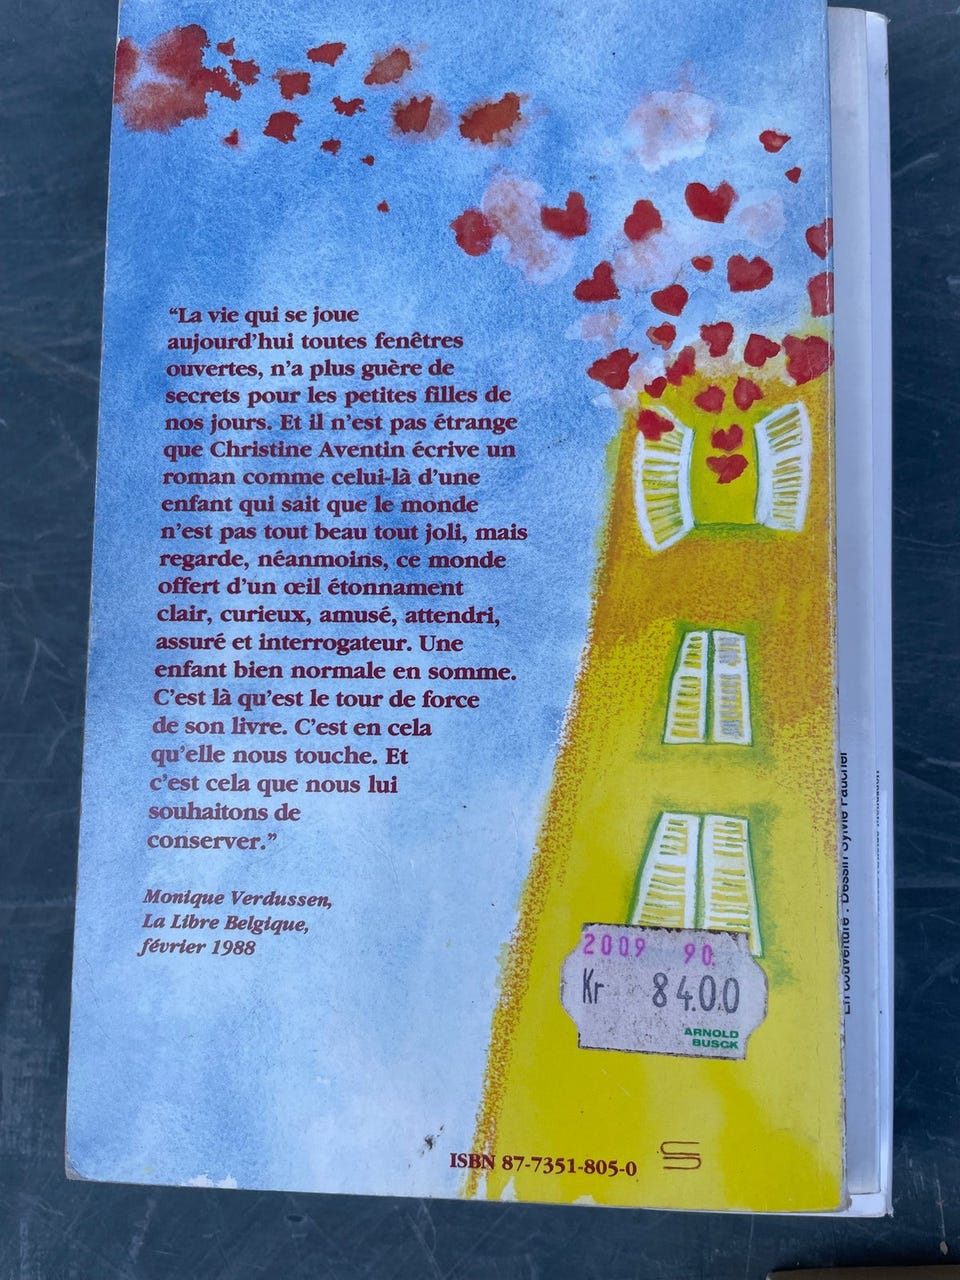 “La vie qui se joue
aujourd’hui toutes fenêtres
ouvertes, n’a plus guère de
secrets pour les petites filles de
nos jours. Et il n’est pas étrange
que Christine Aventin écrive un
roman comme celui-là d’une
enfant qui sait que le monde
n’est pas tout beau tout joli, mais
regarde, néanmoins, ce monde
offert d’un œil étonnament
clair, curieux, amusé, attendri,
assuré et interrogateur. Une
enfant bien normale en somme.
C’est là qu’est le tour de force
de son livre. C’est en cela
qu’elle nous touche. Et
c’est cela que nous lui
souhaitons de
conserver.”
Monique Verdussen,
La Libre Belgique,
février 1988
2009 90.
Kr 84.00
ARNOLD
BUSCK
ISBN 87-7351-805-0
En couverture : Dessin Sylvie Faucher